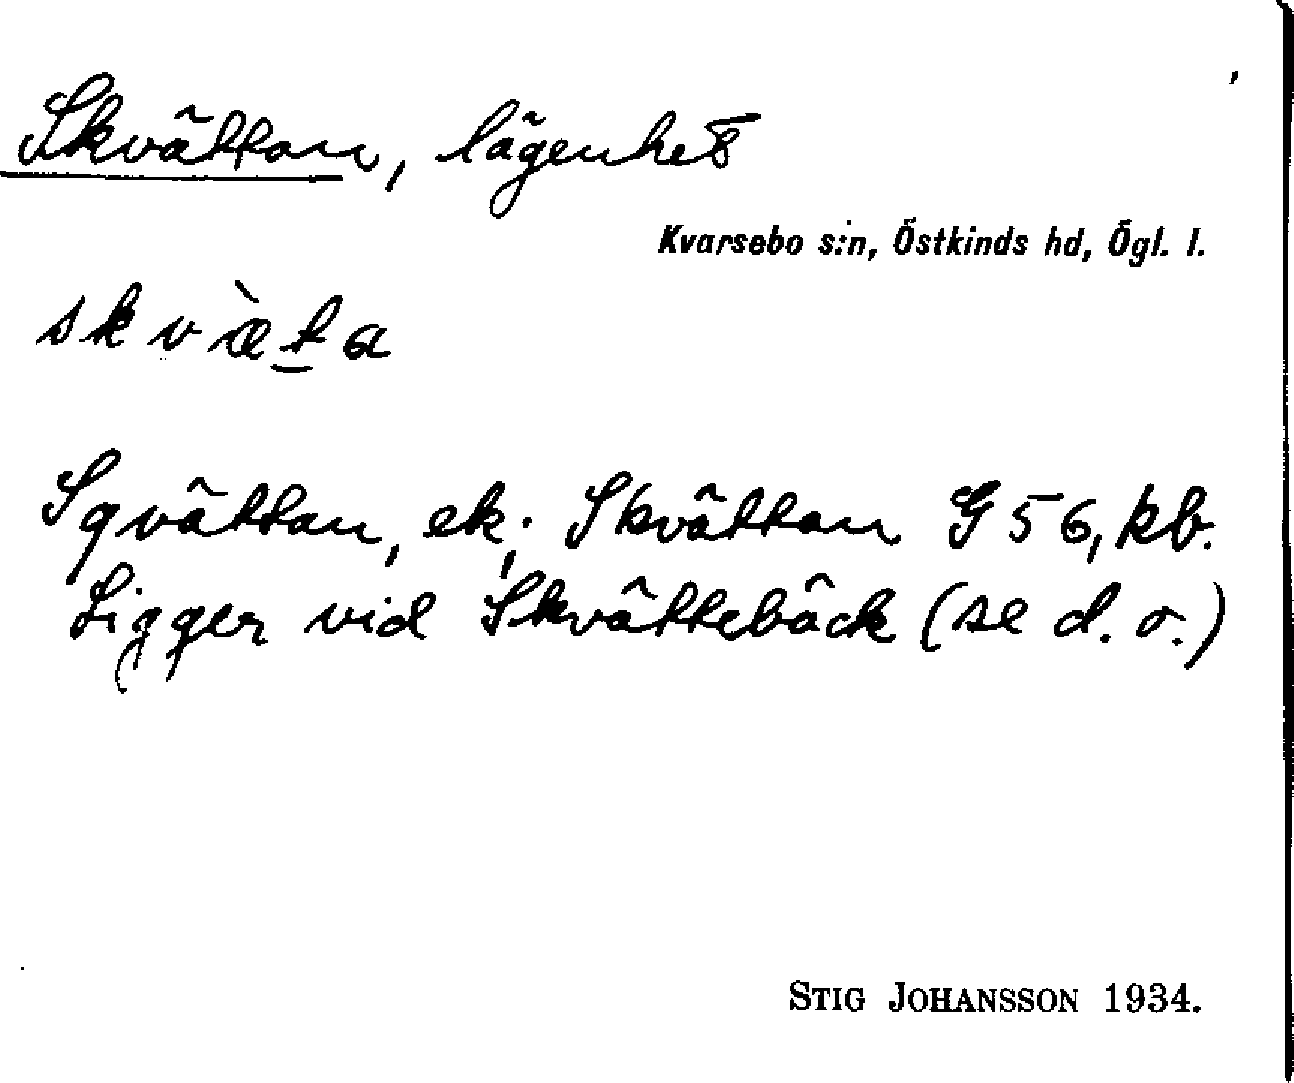 Skvättan, lägenhet
Kvarsebo s:n, Östkinds hd, Ögl. l.
skvæ̀t̲a
Sqvättan, ek; Skvättan G 56, kb.
Ligger vid Skvättebäck (se d. o.)
STIG JOHANSSON 1934.